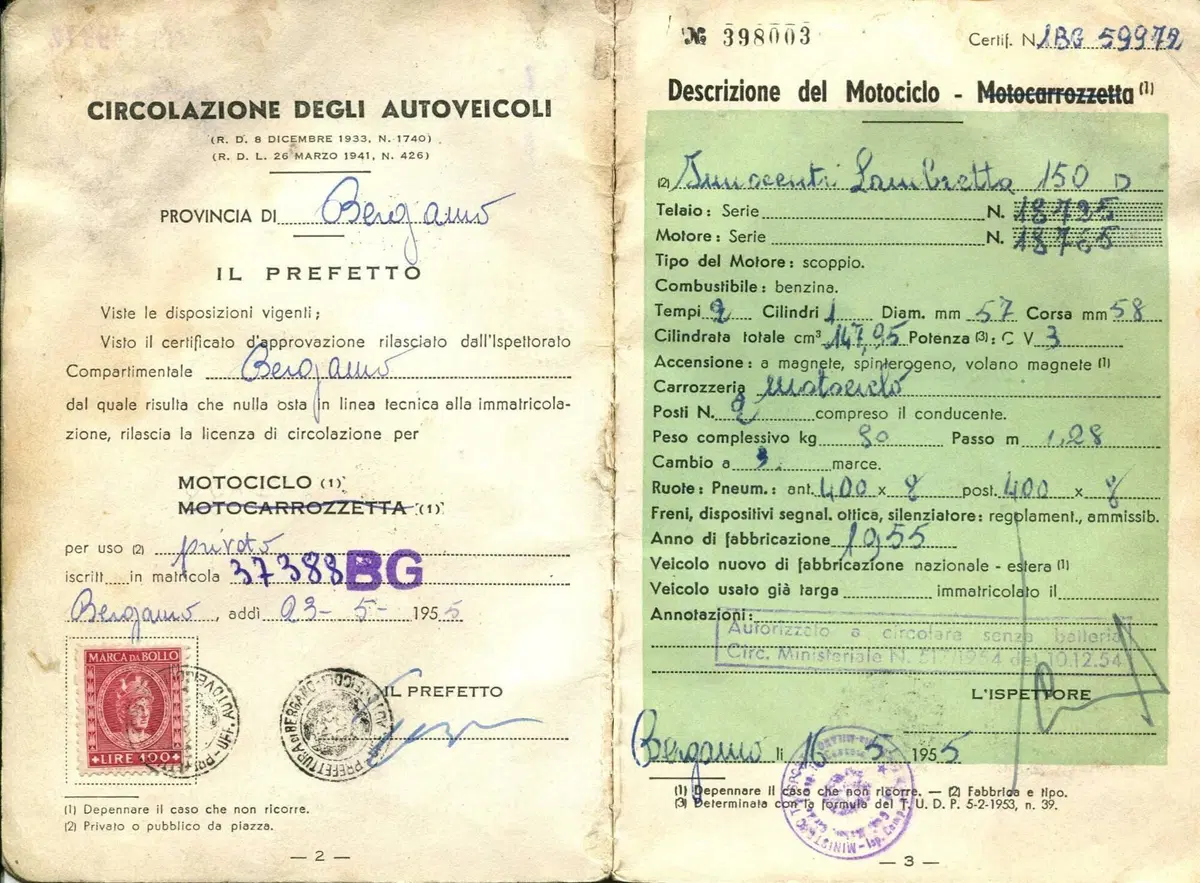 CIRCOLAZIONE DEGLI AUTOVEICOLI
(R. D. 8 DICEMBRE 1933, N. 1740)
(R. D. L. 26 MARZO 1941, N. 426)
PROVINCIA DI Bergamo
IL PREFETTO
Viste le disposizioni vigenti;
Visto il certificato d'approvazione rilasciato dall'Ispettorato
Compartimentale Bergamo
dal quale risulta che nulla osta in linea tecnica alla immatricola-
zione, rilascia la licenza di circolazione per
MOTOCICLO (1)
MOTOCARROZZETTA (1)
per uso (2) privato
iscritt in matricola 37388 BG
Bergamo, addì 23-5-1955
MARCA DA BOLLO
LIRE 100
IL PREFETTO
(1) Depennare il caso che non ricorre.
(2) Privato o pubblico da piazza.
— 2 —
№ 398003
Certif. N. 1BG 59972
Descrizione del Motociclo - Motocarrozzetta (1)
(2) Innocenti Lambretta 150 D
Telaio: Serie N. 18795
Motore: Serie N. 18765
Tipo del Motore: scoppio.
Combustibile: benzina.
Tempi 2 Cilindri 1 Diam. mm 57 Corsa mm 58
Cilindrata totale cm³ 147,95 Potenza (3): C V 3
Accensione: a magnete, spinterogeno, volano magnete (1)
Carrozzeria Motociclo
Posti N. 2 compreso il conducente.
Peso complessivo kg 80 Passo m 1,28
Cambio a 3 marce.
Ruote: Pneum.: ant. 400 x 8 post. 400 x 8
Freni, dispositivi segnal. ottica, silenziatore: regolament., ammissib.
Anno di fabbricazione 1955
Veicolo nuovo di fabbricazione nazionale - estera (1)
Veicolo usato già targa immatricolato il
Annotazioni:
Autorizzato a circolare senza batteria
Circ. Ministeriale N. 517/1954 del 10.12.54
L'ISPETTORE
Bergamo li 16 5 1955
(1) Depennare il caso che non ricorre. — (2) Fabbrica e tipo.
(3) Determinata con la formula del T. U. D. P. 5-2-1953, n. 39.
— 3 —